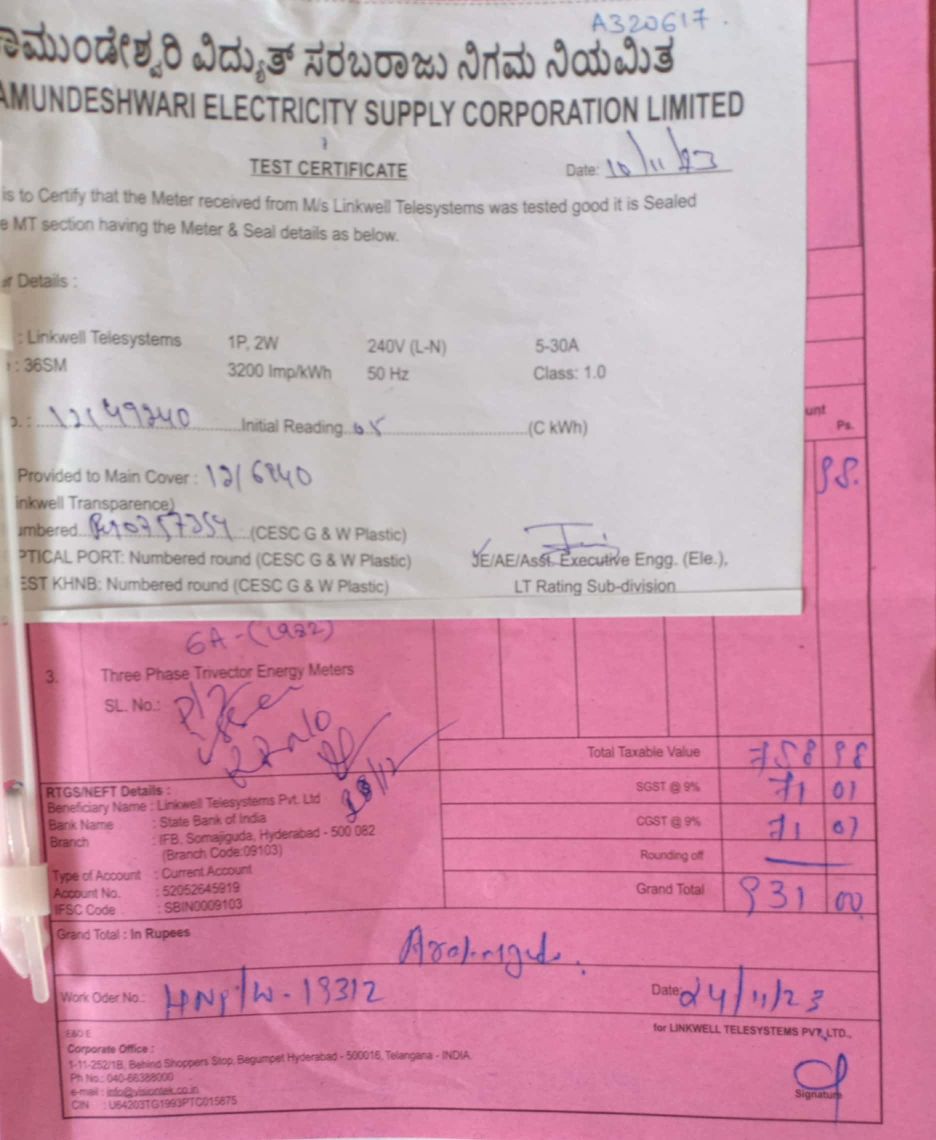 A320617.
ಾಮುಂಡೇಶ್ವರಿ ವಿದ್ಯುತ್ ಸರಬರಾಜು ನಿಗಮ ನಿಯಮಿತ
AMUNDESHWARI ELECTRICITY SUPPLY CORPORATION LIMITED
TEST CERTIFICATE Date: 10/11/23
is to Certify that the Meter received from M/s Linkwell Telesystems was tested good it is Sealed
e MT section having the Meter & Seal details as below.
er Details :
: Linkwell Telesystems 1P, 2W 240V (L-N) 5-30A
: 36SM 3200 Imp/kWh 50 Hz Class: 1.0
o. : 12149240 Initial Reading 05 (C kWh)
unt
Ps.
Provided to Main Cover : 1216840
98.
inkwell Transparence)
umbered (CESC G & W Plastic)
PTICAL PORT: Numbered round (CESC G & W Plastic) JE/AE/Asst. Executive Engg. (Ele.),
EST KHNB: Numbered round (CESC G & W Plastic) LT Rating Sub-division
3. Three Phase Trivector Energy Meters
SL. No.:
Total Taxable Value 758 98
RTGS/NEFT Details : SGST @ 9% 71 01
Beneficiary Name : Linkwell Telesystems Pvt. Ltd
Bank Name : State Bank of India CGST @ 9% 71 01
Branch : IFB, Somajiguda, Hyderabad - 500 082
(Branch Code:09103) Rounding off
Type of Account : Current Account
Account No. : 52052645919 Grand Total 931 00
IFSC Code : SBIN0009103
Grand Total : In Rupees
Work Oder No.: HNP/W-19312 Date: 24/11/23
E&O E for LINKWELL TELESYSTEMS PVT. LTD.,
Corporate Office :
1-11-252/1B, Behind Shoppers Stop, Begumpet Hyderabad - 500016, Telangana - INDIA.
Ph No.: 040-66388000
e-mail : info@visiontek.co.in Signature
CIN : U64203TG1993PTC015875